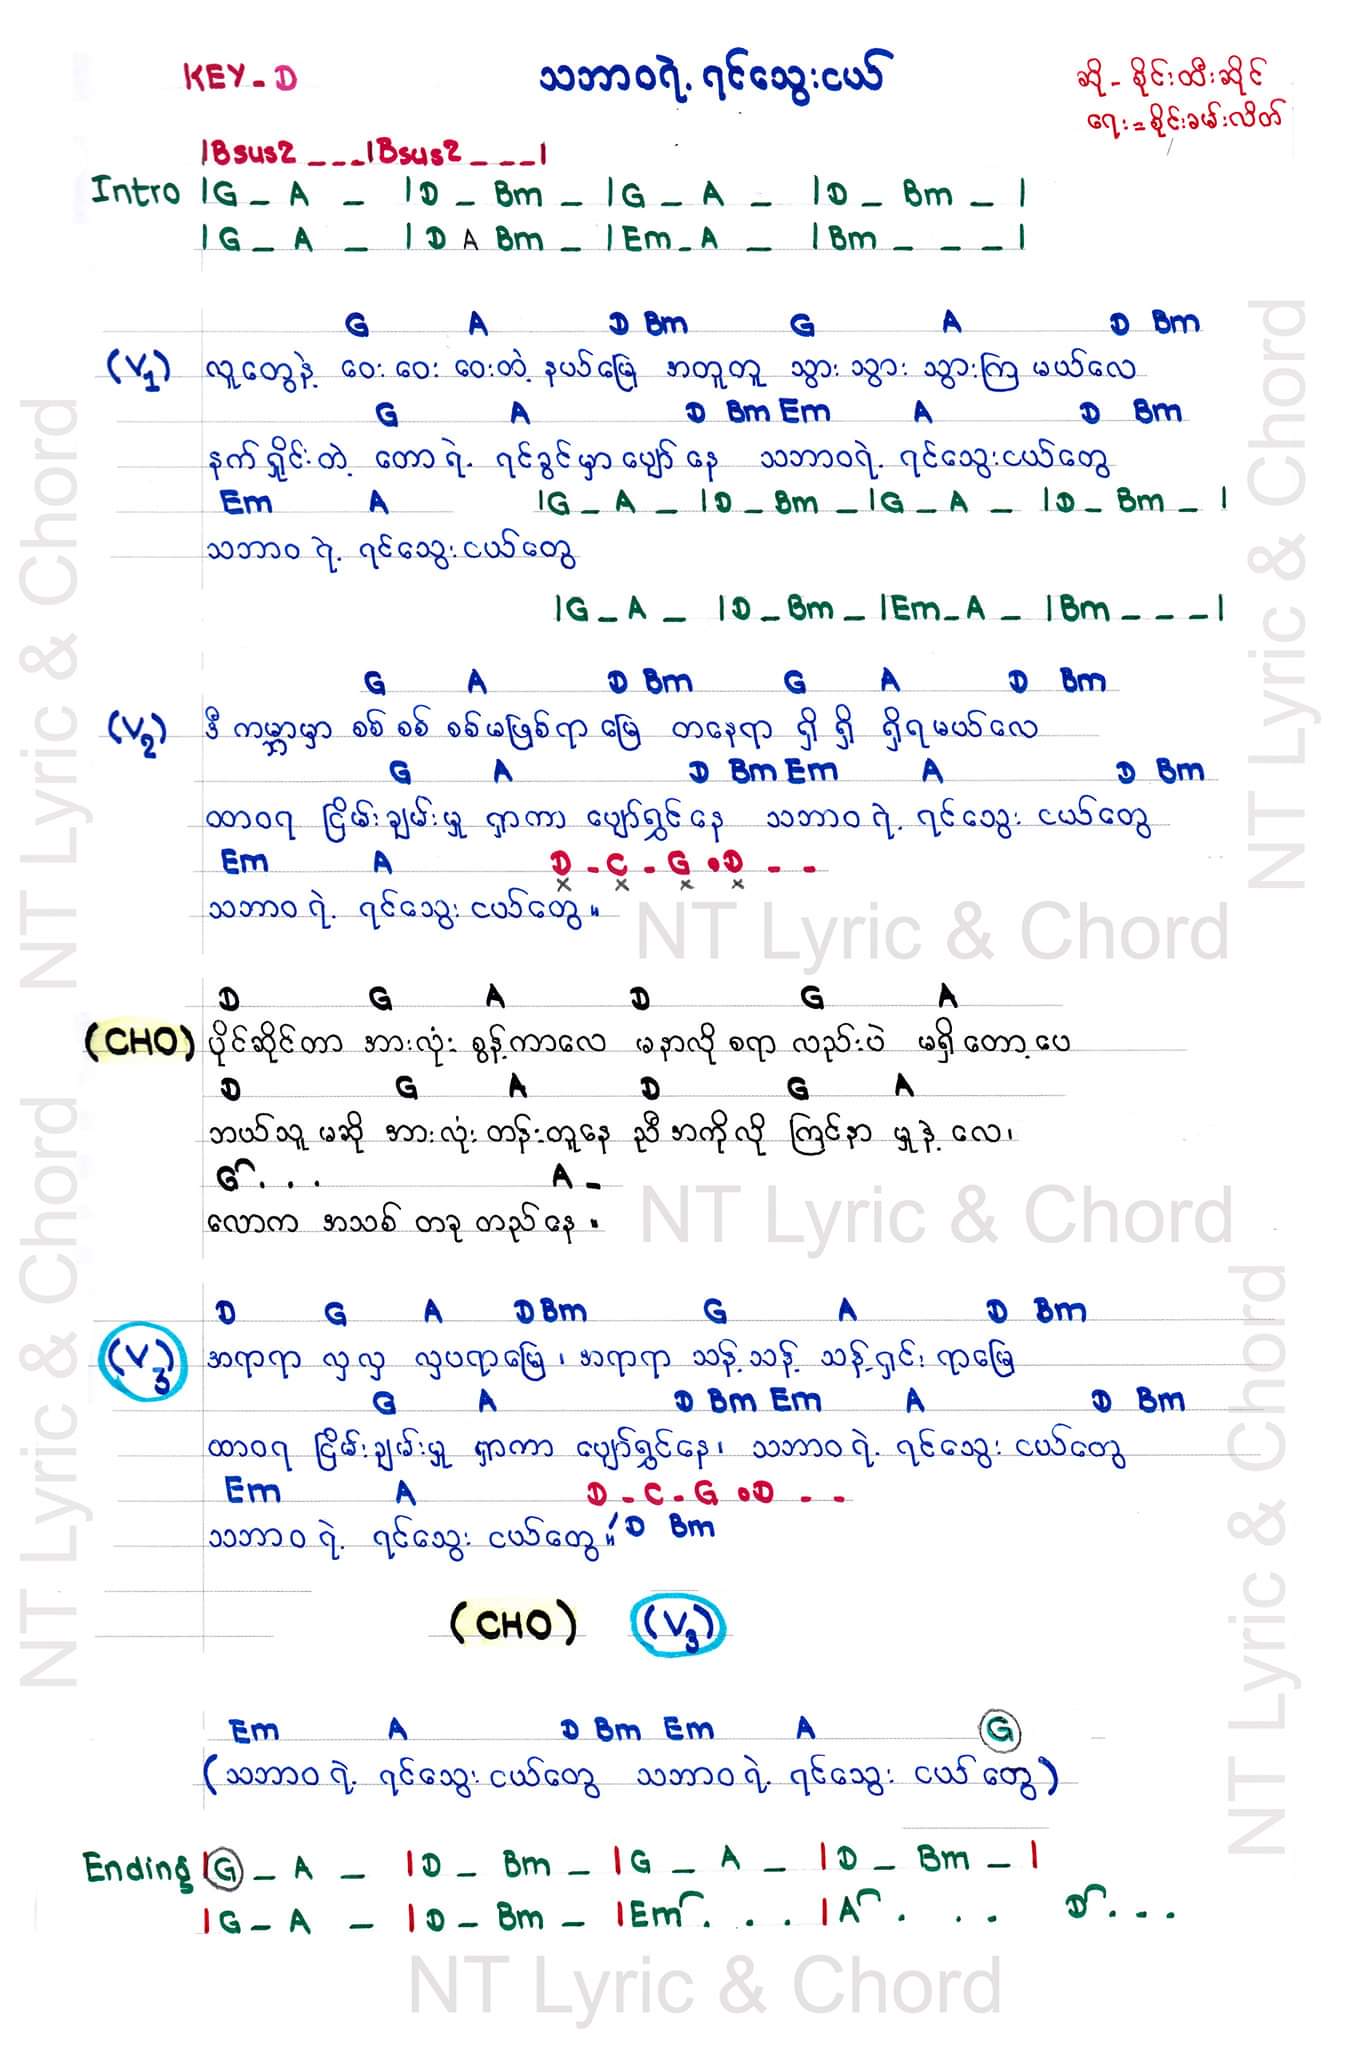 KEY - D
သဘာဝရဲ့ ရင်သွေးငယ်
ဆို - စိုင်းထီးဆိုင်
ရေး = စိုင်းခမ်းလိတ်
|Bsus2 _ _ _ |Bsus2 _ _ _ |
Intro |G _ A _ |D _ Bm _ |G _ A _ |D _ Bm _ |
|G _ A _ |D A Bm _ |Em _ A _ |Bm _ _ _ |
G A D Bm G A D Bm
(V1) လူတွေနဲ့ ဝေး ဝေး ဝေးတဲ့ နယ်မြေ အတူတူ သွား သွား သွားကြ မယ်လေ
G A D Bm Em A D Bm
နက်ရှိုင်းတဲ့ တောရဲ့ ရင်ခွင်မှာ ပျော်နေ သဘာဝရဲ့ ရင်သွေးငယ်တွေ
Em A |G _ A _ |D _ Bm _ |G _ A _ |D _ Bm _ |
သဘာဝ ရဲ့ ရင်သွေးငယ်တွေ
|G _ A _ |D _ Bm _ |Em _ A _ |Bm _ _ _ |
G A D Bm G A D Bm
(V2) ဒီ ကမ္ဘာမှာ စစ် စစ် စစ်မဖြစ်ရာ မြေ တနေရာ ရှိ ရှိ ရှိရမယ်လေ
G A D Bm Em A D Bm
ထာဝရ ငြိမ်းချမ်းမှု ရှာကာ ပျော်ရွှင်နေ သဘာဝ ရဲ့ ရင်သွေး ငယ်တွေ
Em A D - C - G • D - -
x x x x
သဘာဝ ရဲ့ ရင်သွေး ငယ်တွေ ။
NT Lyric & Chord
D G A D G A
(CHO) ပိုင်ဆိုင်တာ အားလုံး စွန့်ကာလေ မနာလိုစရာ လည်းပဲ မရှိတော့ပေ
D G A D G A
ဘယ်သူ မဆို အားလုံး တန်းတူနေ ညီအကိုလို ကြင်နာ မှုနဲ့ လေ၊
G . . . A -
လောက အသစ် တခု တည်နေ ။
NT Lyric & Chord
D G A D Bm G A D Bm
(V3) အရာရာ လှလှ လှပရာမြေ ၊ အရာရာ သန့် သန့် သန့်ရှင်း ရာမြေ
G A D Bm Em A D Bm
ထာဝရ ငြိမ်းချမ်းမှု ရှာကာ ပျော်ရွှင်နေ၊ သဘာဝ ရဲ့ ရင်သွေး ငယ်တွေ
Em A D - C - G • D - -
သဘာဝ ရဲ့ ရင်သွေး ငယ်တွေ ။ / D Bm
(CHO) (V3)
Em A D Bm Em A G
(သဘာဝ ရဲ့ ရင်သွေး ငယ်တွေ သဘာဝ ရဲ့ ရင်သွေး ငယ်တွေ)
Ending |G _ A _ |D _ Bm _ |G _ A _ |D _ Bm _ |
|G _ A _ |D _ Bm _ |Em . . . |A . . . D . . .
NT Lyric & Chord
NT Lyric & Chord
NT Lyric & Chord
NT Lyric & Chord
NT Lyric & Chord
NT Lyric & Chord